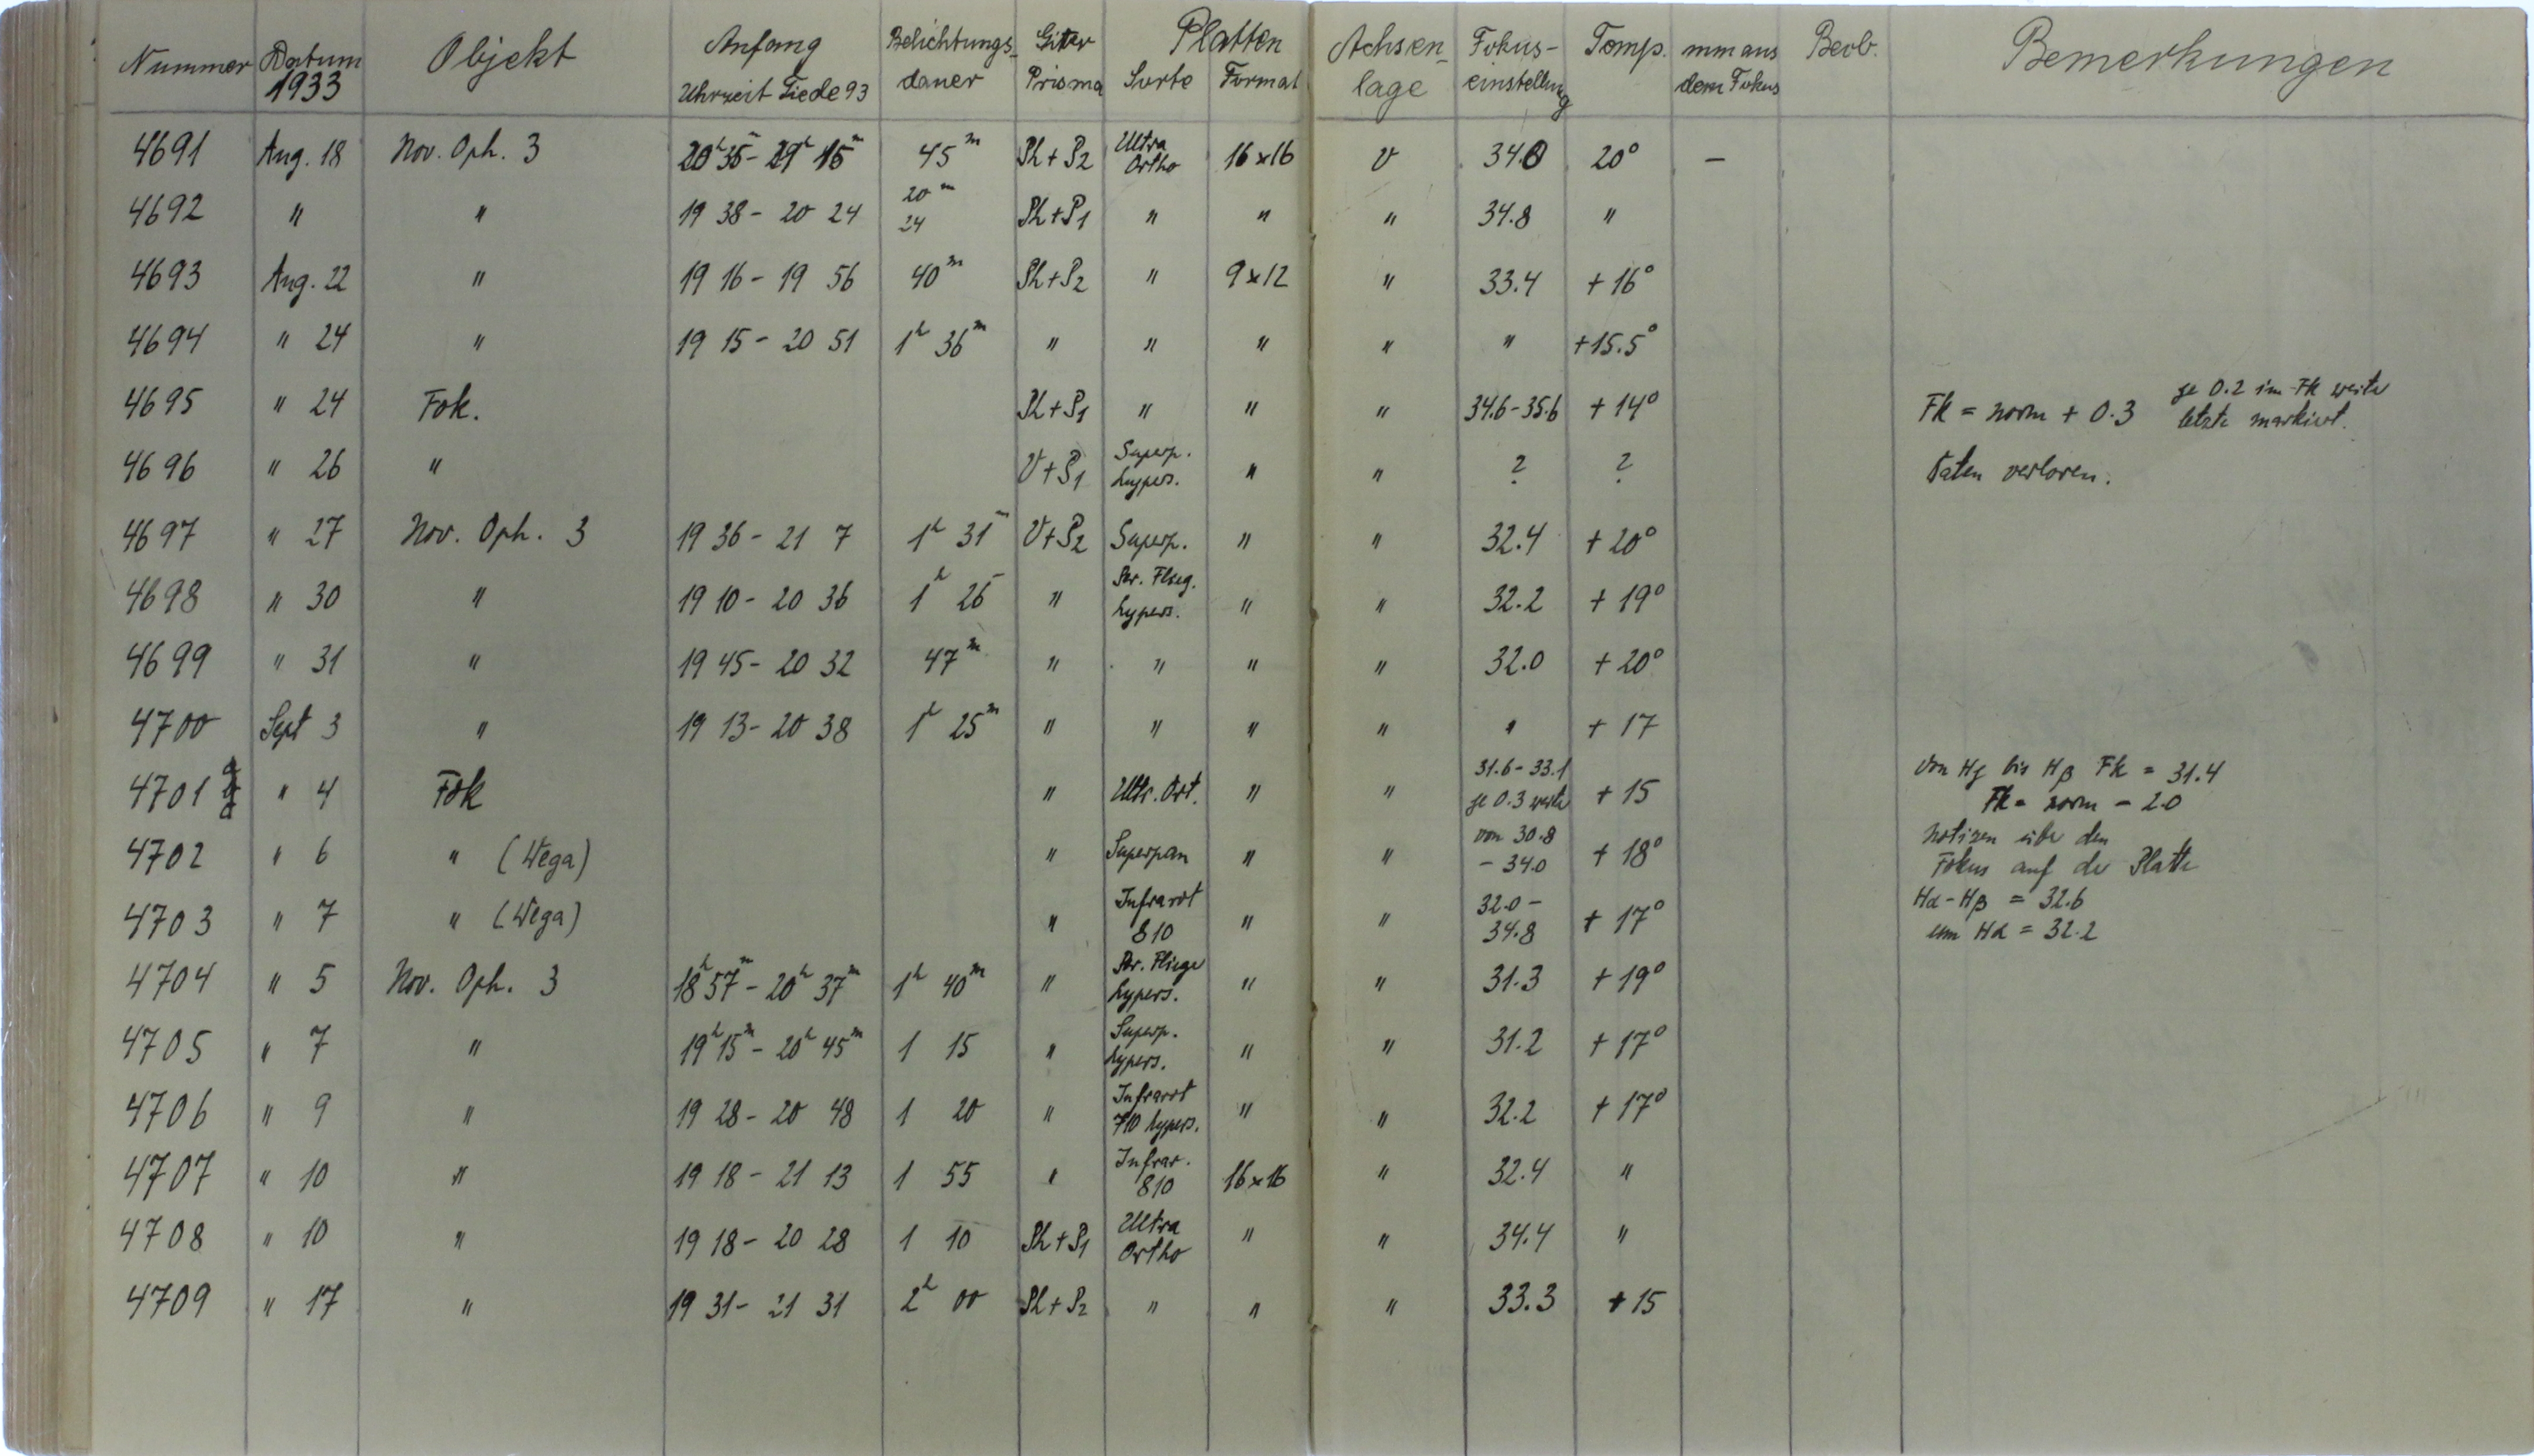 Nummer Datum 1933 Objekt Anfang Uhrzeit Tiede 93 Belichtungs-dauer Gitter Prisma Platten Sorte Format Achsen-lage Fokus-einstellung Temp. mm aus dem Fokus Beob. Bemerkungen
4691 Aug. 18 Nov. Oph. 3 20h 35m - 21h 15m 45m Ph + P2 Ultra Ortho 16 x 16 V 34.0 20° —
4692 " " 19 38 - 20 24 20m 24 Ph + P1 " " " 34.8 "
4693 Aug. 22 " 19 16 - 19 56 40m Ph + P2 " 9 x 12 " 33.4 + 16°
4694 " 24 " 19 15 - 20 51 1h 36m " " " " " + 15.5°
4695 " 24 Fok. Ph + P1 " " " 34.6 - 35.6 + 14° Fk = norm + 0.3 je 0.2 im Fk weiter letzte markiert.
4696 " 26 " V + P1 Superp. hypers. " " ? ? Daten verloren.
4697 " 27 Nov. Oph. 3 19 36 - 21 7 1h 31m V + P2 Superp. " " 32.4 + 20°
4698 " 30 " 19 10 - 20 36 1h 26 " Flieg. hypers. " " 32.2 + 19°
4699 " 31 " 19 45 - 20 32 47m " " " " 32.0 + 20°
4700 Sept 3 " 19 13 - 20 38 1h 25m " " " " " + 17
4701 " 4 Fok " Ultr. Ort. " " 31.6 - 33.1 je 0.3 weiter + 15 von Hγ bis Hβ Fk = 31.4 Fk = norm - 2.0
4702 " 6 " (Wega) " Superpan " " von 30.8 - 34.0 + 18° Notizen über den Fokus auf der Platte
4703 " 7 " (Wega) " Infrarot 810 " " 32.0 - 34.8 + 17° Hα - Hβ = 32.6 um Hα = 32.2
4704 " 5 Nov. Oph. 3 18h 57m - 20h 37m 1h 40m " Flieger hypers. " " 31.3 + 19°
4705 " 7 " 19h 15m - 20h 45m 1 15 " Superp. hypers. " " 31.2 + 17°
4706 " 9 " 19 28 - 20 48 1 20 " Infrarot 710 hypers. " " 32.2 + 17°
4707 " 10 " 19 18 - 21 13 1 55 " Infrar. 810 16 x 16 " 32.4 "
4708 " 10 " 19 18 - 20 28 1 10 Ph + P1 Ultra Ortho " " 34.4 "
4709 " 17 " 19 31 - 21 31 2h 00 Ph + P2 " " " 33.3 + 15